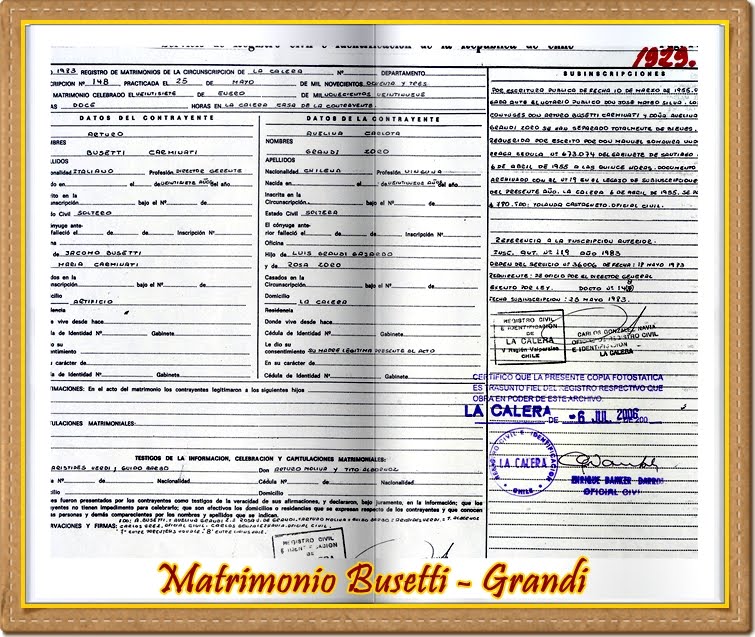 Servicio de Registro Civil e Identificación de la República de Chile
1929.
1983 REGISTRO DE MATRIMONIOS DE LA CIRCUNSCRIPCION DE LA CALERA Nº DEPARTAMENTO
CRIPCION Nº 148 PRACTICADA EL 25 DE MAYO DE MIL NOVECIENTOS OCHENTA Y TRES
MATRIMONIO CELEBRADO EL VEINTISIETE DE ENERO DE MIL NOVECIENTOS VEINTINUEVE
AS DOCE HORAS EN LA CALERA CASA DE LA CONTRAYENTE.
DATOS DEL CONTRAYENTE
ARTURO
BRES
BUSETTI CARMINATI
LLIDOS
ionalidad ITALIANO Profesión DIRECTOR GERENTE
do en de VEINTISIETE AÑOS del año
ita en la
nscripción bajo el Nº de
do Civil SOLTERO
El cónyuge ante-
falleció el de de Inscripción Nº
na
de JACOMO BUSETTI
MARIA CARMINATI
dos en la
nscripción bajo el Nº de
cilio
ARTIFICIO
dencia
e vive desde hace
la de Identidad Nº Gabinete
o su
entimiento
carácter de
la de Identidad Nº Gabinete
DATOS DE LA CONTRAYENTE
AVELINA CARLOTA
NOMBRES
GRANDI ZORO
APELLIDOS
Nacionalidad CHILENA Profesión NINGUNA
Nacida en de VEINTINUEVE AÑOS del año
Inscrita en la
Circunscripción bajo el Nº de
Estado Civil SOLTERA
El cónyuge ante-
rior falleció el de de Inscripción Nº
Oficina
Hijo de LUIS GRANDI
y de ROSA ZORO
Casados en la
Circunscripción bajo el Nº de
Domicilio
LA CALERA
Residencia
Donde vive desde hace
Cédula de Identidad Nº Gabinete
Le dio su
consentimiento SU MADRE LEGITIMA PRESENTE AL ACTO
En su carácter de
Cédula de Identidad Nº Gabinete
TIMACIONES: En el acto del matrimonio los contrayentes legitimaron a los siguientes hijos
TULACIONES MATRIMONIALES:
TESTIGOS DE LA INFORMACION, CELEBRACION Y CAPITULACIONES MATRIMONIALES:
ARISTIDES VERDI, GUIDO Don ARTURO MOLINA Y TITO ALBORNOZ
de Nacionalidad Cédula de Nacionalidad
Domicilio
es fueron presentados por los contrayentes como testigos de la veracidad de sus afirmaciones, y declararon, bajo juramento, en la Información; que los
yentes no tienen impedimento para celebrarlo; que son efectivos los domicilios o residencias que se expresan respecto de los contrayentes y que conocen
as personas y demás comparecientes por los nombres y apellidos que se indican.
RVACIONES Y FIRMAS:
REGISTRO CIVIL
SUBINSCRIPCIONES
POR ESCRITURA PUBLICA DE FECHA 10 DE MARZO DE 1955.
GADA ANTE EL NOTARIO PUBLICO DON JOSE MATEO SILVA. LO
CONYUGES DON ARTURO BUSETTI CARMINATI Y DOÑA AVELINA
GRANDI ZORO SE HAN SEPARADO TOTALMENTE DE BIENES.
REQUERIDO POR ESCRITO POR DON MANUEL
CEDULA Nº 673.074 DEL GABINETE DE SANTIAGO
6 DE ABRIL DE 1955 A LAS QUINCE HORAS. DOCUMENTO
ARCHIVADO CON EL Nº 19 EN EL LEGAJO DE SUBINSCRIPCIONE
DEL PRESENTE AÑO. LA CALERA 6 DE ABRIL DE 1955.
$ 780. FDO: YOLANDA CASTAGNETO. OFICIAL CIVIL.
REFERENCIA A LA INSCRIPCION ANTERIOR.
INSC. ANT. Nº 119 AÑO 1983
ORDEN DEL SERVICIO Nº 36006 DE FECHA: 17 MAYO 1983
REQUIRENTE: DE OFICIO POR EL DIRECTOR GENERAL
EXENTO POR LEY. DOCTO Nº 14
FECHA SUBINSCRIPCION: 20 MAYO 1983.
REGISTRO CIVIL
E IDENTIFICACION
DE
LA CALERA
V Región Valparaíso
CHILE
CARLOS GONZALEZ NAVIA
OFICIAL DE REGISTRO CIVIL
E IDENTIFICACION
LA CALERA
CERTIFICO QUE LA PRESENTE COPIA FOTOSTATICA
ES TRASUNTO FIEL DEL REGISTRO RESPECTIVO QUE
OBRA EN PODER DE ESTE ARCHIVO.
LA CALERA DE -6 JUL 2006 DE 200
REGISTRO CIVIL E IDENTIFICACION
LA CALERA
CHILE
ENRIQUE DANKER BARROS
OFICIAL CIVIL
Matrimonio Busetti - Grandi